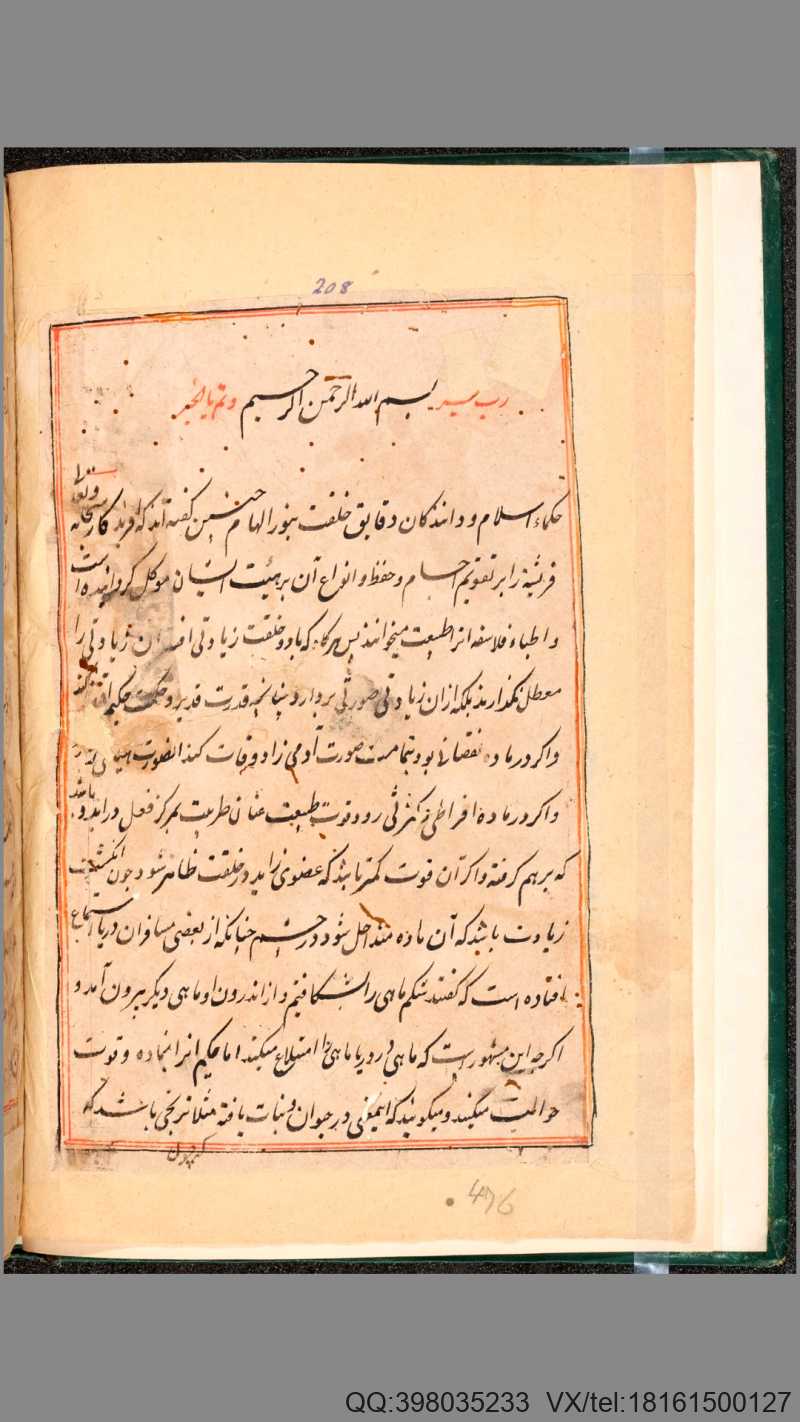 208
رب یسر بسم الله الرحمن الرحیم وتمم بالخیر
حکماء اسلام و دانندکان دقایق خلقت بنور الهام چنین کفته اند که افریدکار سبحانه وتعالی
فریشته را بر تقویم اجسام و حفظ و انواع آن بر هیئت انسان موکل کردانیده است
و اطباء فلاسفه انرا طبیعت میخوانند پس هرکاه که ماده خلقت زیادتی افتد آن زیادتی را
معطل نکذارند بلکه ازان زیادتی صورتی بردارد چنانچه قدرت قدیر و حکمت حکیم
واکر در ماده نقصانی بود بتمامیت صورت آدمی زاد وفات کند انصورت
واکر در ماده افراطی و کثرتی رود و قوت طبیعت عنان طربیت بمرکز فعل دراید و باشد
که برهم کرفته واکر آن قوت کمتر باشد که عضوی زاید در خلقت ظاهر شود چون انکشت
زیادت باشد که آن ماده متداخل شود در جسم چنانکه از بعضی مسافران دریا استماع
افتاده است که کفتند شکم ماهی را بشکافتیم و از اندرون او ماهی دیکر بیرون آمد و
اکرچه این مشهور است که ماهی در دریا ماهی را ابتلاع میکند اما حکیم انرا بماده و قوت
حوالت میکنند و میکویند که اینمعنی در حیوان و نبات یافته مثلا ترنجی باشد که
476
QQ:398035233 VX/tel:18161500127